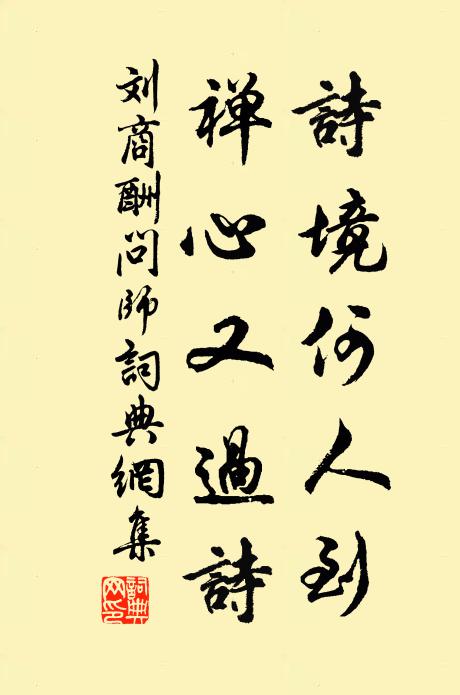 詩境何人到
禅心又過詩
刘商酬问師詞典網集
詞典網印